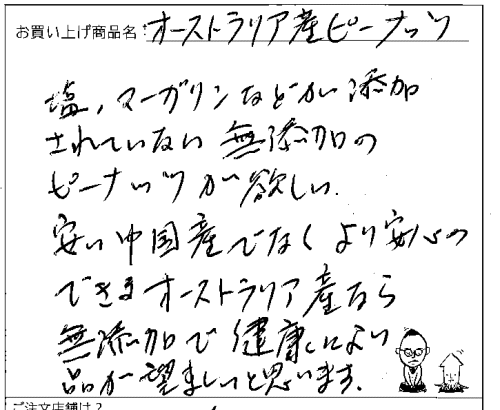 お買い上げ商品名：オーストラリア産ピーナッツ
塩，マーガリンなどが添加
されていない無添加の
ピーナッツが欲しい．
安い中国産でなくより安心の
できるオーストラリア産なら
無添加で健康により
品が望ましいと思います．
ご注文店舗は？